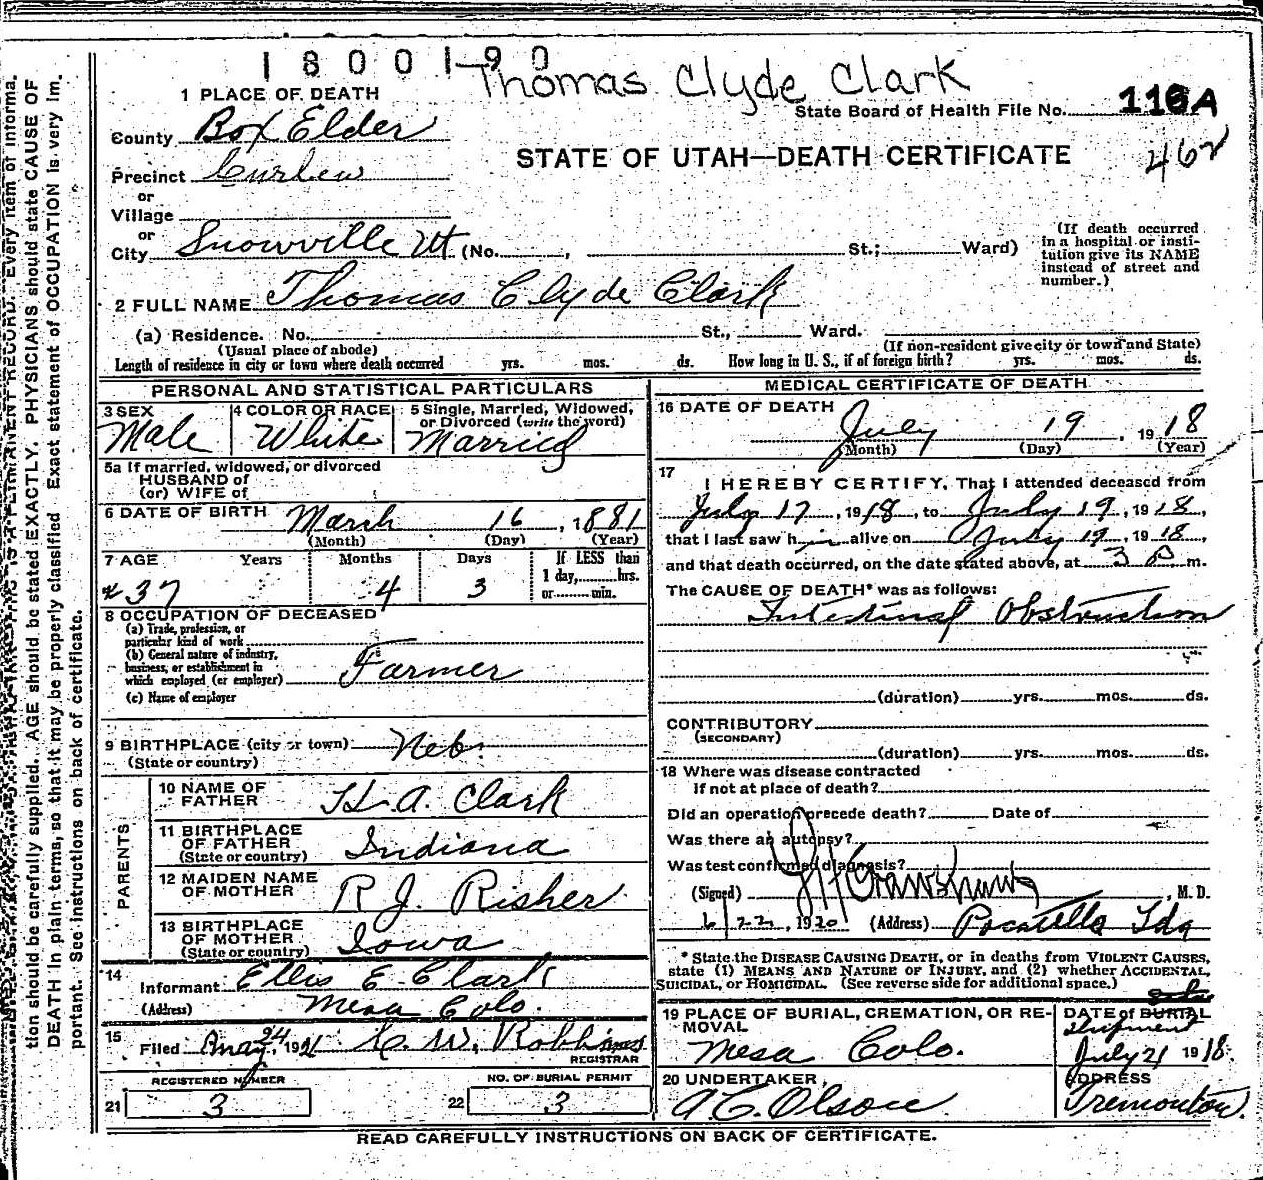 1800190
Thomas Clyde Clark
1 PLACE OF DEATH
State Board of Health File No. 116A
County Box Elder
STATE OF UTAH—DEATH CERTIFICATE
462
Precinct Curlew
or
Village
or
City Snowville Ut (No. , St.; Ward)
(If death occurred in a hospital or insti-
tution give its NAME
instead of street and
number.)
2 FULL NAME Thomas Clyde Clark
(a) Residence. No. St., Ward.
(Usual place of abode) (If non-resident give city or town and State)
Length of residence in city or town where death occurred yrs. mos. ds. How long in U. S., if of foreign birth? yrs. mos. ds.
PERSONAL AND STATISTICAL PARTICULARS
3 SEX
Male
4 COLOR OR RACE
White
5 Single, Married, Widowed,
or Divorced (write the word)
Married
5a If married, widowed, or divorced
HUSBAND of
(or) WIFE of
6 DATE OF BIRTH March 16, 1881
(Month) (Day) (Year)
7 AGE Years Months Days If LESS than
1 day, hrs.
or min.
37 4 3
8 OCCUPATION OF DECEASED
(a) Trade, profession, or
particular kind of work
(b) General nature of industry,
business, or establishment in
which employed (or employer) Farmer
(c) Name of employer
9 BIRTHPLACE (city or town) Neb.
(State or country)
PARENTS
10 NAME OF
FATHER H. A. Clark
11 BIRTHPLACE
OF FATHER
(State or country) Indiana
12 MAIDEN NAME
OF MOTHER R J. Risher
13 BIRTHPLACE
OF MOTHER
(State or country) Iowa
14
Informant Ellis E. Clark
(Address) Mesa Colo.
15
Filed May 24, 1921 W. Robbins
REGISTRAR
REGISTERED NUMBER
21 3
NO. OF BURIAL PERMIT
22 3
MEDICAL CERTIFICATE OF DEATH
16 DATE OF DEATH
July 19, 1918
(Month) (Day) (Year)
17
I HEREBY CERTIFY, That I attended deceased from
July 17, 1918, to July 19, 1918,
that I last saw him alive on July 19, 1918,
and that death occurred, on the date stated above, at 3 P m.
The CAUSE OF DEATH* was as follows:
Intestinal Obstruction
(duration) yrs. mos. ds.
CONTRIBUTORY
(SECONDARY)
(duration) yrs. mos. ds.
18 Where was disease contracted
if not at place of death?
Did an operation precede death? Date of
Was there an autopsy?
Was test confirmed diagnosis?
(Signed) , M. D.
6/22, 1920 (Address) Pocatello Ida
* State the DISEASE CAUSING DEATH, or in deaths from VIOLENT CAUSES,
state (1) MEANS AND NATURE OF INJURY, and (2) whether ACCIDENTAL,
SUICIDAL, or HOMICIDAL. (See reverse side for additional space.)
19 PLACE OF BURIAL, CREMATION, OR RE-
MOVAL
Mesa Colo.
DATE of BURIAL
Shipment
July 21 1918.
20 UNDERTAKER
A C. Olson
ADDRESS
Tremonton.
READ CAREFULLY INSTRUCTIONS ON BACK OF CERTIFICATE.
PERMANENT RECORD. Every item of informa-
tion should be carefully supplied. AGE should be stated EXACTLY. PHYSICIANS should state CAUSE OF
DEATH in plain terms, so that it may be properly classified. Exact statement of OCCUPATION is very im-
portant. See instructions on back of certificate.